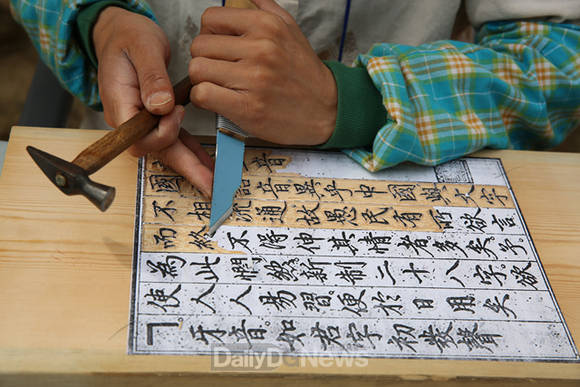 音
國語音異乎中國與文字
不相流通故愚民有所欲言
而終不得伸其情者多矣予
爲此憫然新制二十八字欲
使人人易習便於日用矣
ㄱ。牙音。如君字初發聲
DailyDcNews